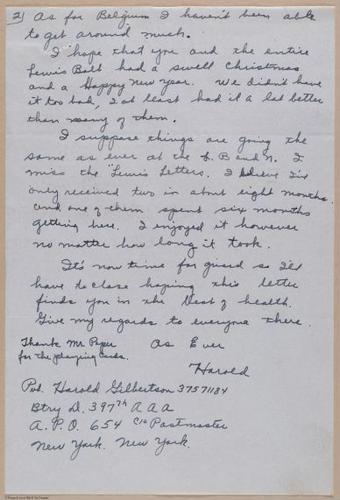 2) As for Belgium I haven't been able
to get around much.
I hope that you and the entire
Lewis Bolt had a swell Christmas
and a Happy New Year. We didn't have
it too bad, I at least had it a lot better
than many of them.
I suppose things are going the
same as ever at the L. B and N. I
miss the "Lewis Letters. I believe I've
only received two in about eight months
and one of them spent six months
getting here. I enjoyed it however
no matter how long it took.
It's now time for guard so I'll
have to close hoping this letter
finds you in the best of health.
Give my regards to everyone there.
Thank Mr Piper
for the playing cards.
As Ever
Harold
Pvt. Harold Gilbertson 37571184
Btry D. 397th A A A
A. P. O. 654 c/o Postmaster
New York. New York.